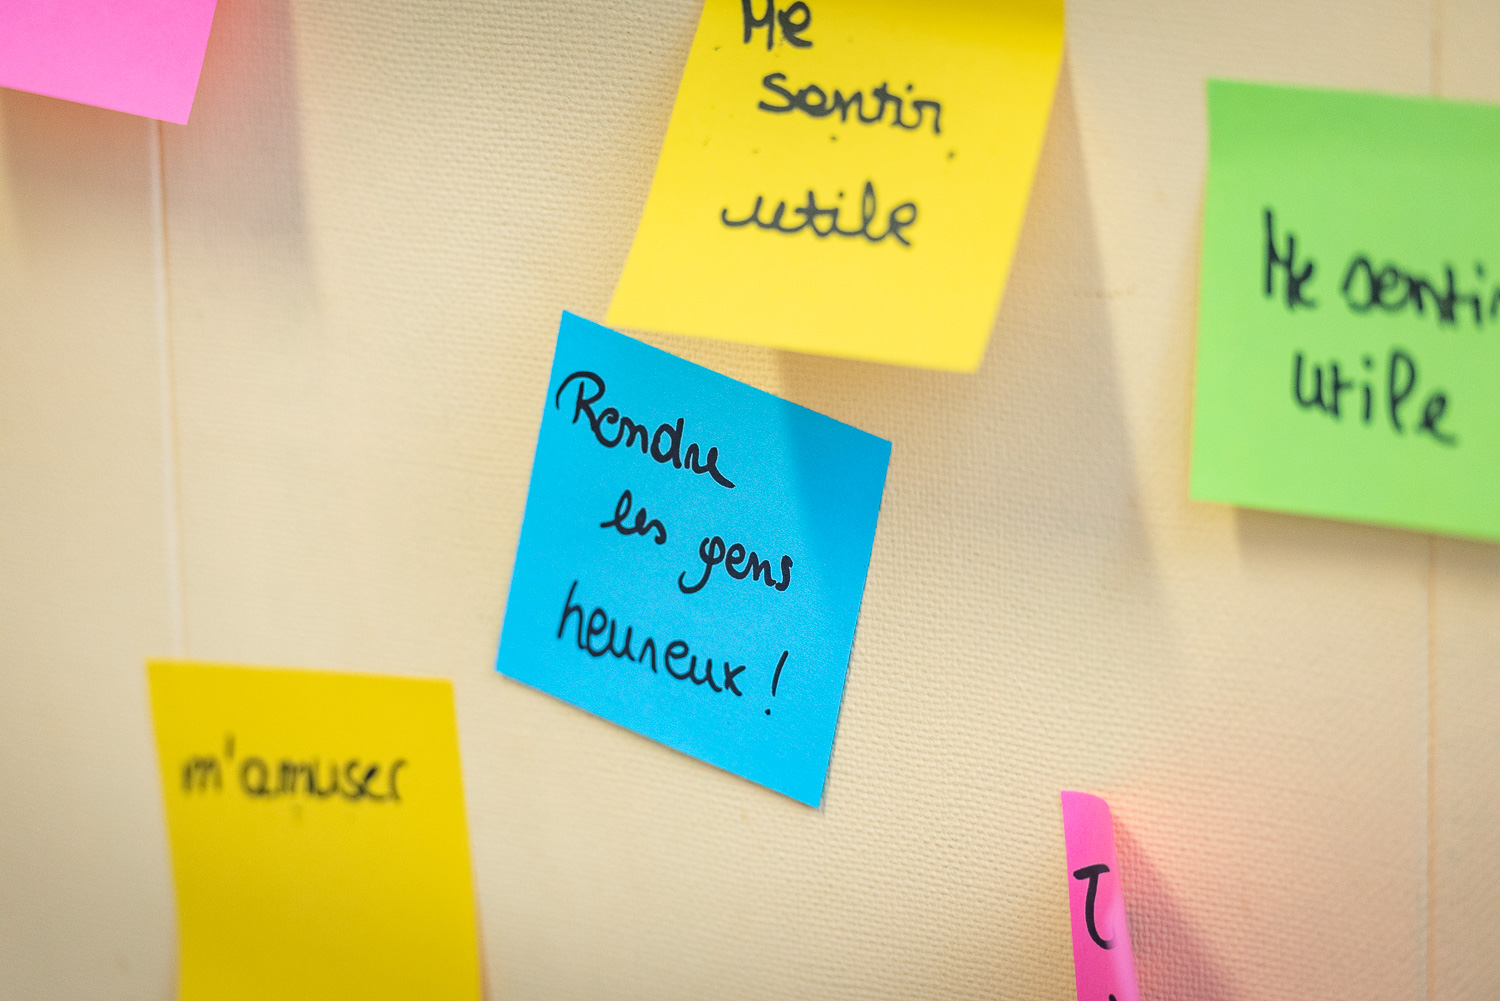 Me
sentir
utile
Me sentir
utile
Rendre
les gens
heureux !
m'amuser